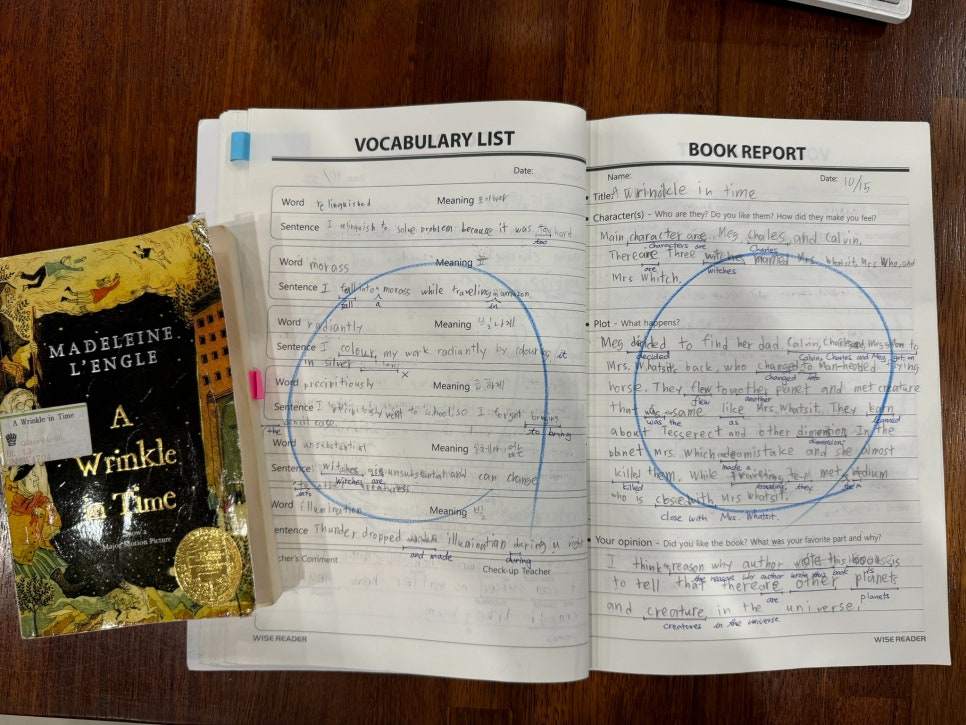 MADELEINE
L'ENGLE
A Wrinkle in Time
A
Wrinkle
in Time
Major Motion Picture
VOCABULARY LIST
Date:
Word relinguished Meaning
Sentence I relinguish to solve problem because it was too hard
too
Word morass Meaning 늪
Sentence I fell into morass while traveling in amazon
fell a in
Word radiantly Meaning 빛나게
Sentence I colour my work radiantly by colouring it
in silver
Word precipitiously Meaning 급하게
Sentence I precipitiously went to school so I forgot bringing
the pencil case. to bring
Word unsubstantial Meaning
Sentence witches are unsubstantial and can change
witches are
into
Word illumination Meaning 빛
Sentence Thunder dropped illumination during a night
and made during
Teacher's Comment Check-up Teacher
WISE READER
BOOK REPORT
Name: Date: 10/15
Title: A wrinkle in time
Character(s) - Who are they? Do you like them? How did they make you feel?
Main character are Meg, Chales, and Calvin.
characters are Charles
There are Three witches named Mrs whatsit, Mrs Who, and
are witches
Mrs Whitch.
Plot - What happens?
Meg dicided to find her dad. Calvin, Charles and Meg got on to
decided Calvin, Charles and Meg got on
Mrs. Whatsit's back, who changed to man-headed flying
changed into
horse. They flew to another planet and met creature
flew another
that was same like Mrs. Whatsit. They learn
was the as learned
about Tesserect and other dimension. In the
dimensions
planet Mrs. Which made mistake and she almost
made a
killed them. While traveling to met medium
killed traveling, they
who is close with Mrs Whatsit.
close with Mrs. Whatsit.
Your opinion - Did you like the book? What was your favorite part and why?
I think reason why author wrote this book is
the reason why author wrote this book is
to tell that there are other planets
are planets
and creature in the universe.
creatures in the universe.
WISE READER